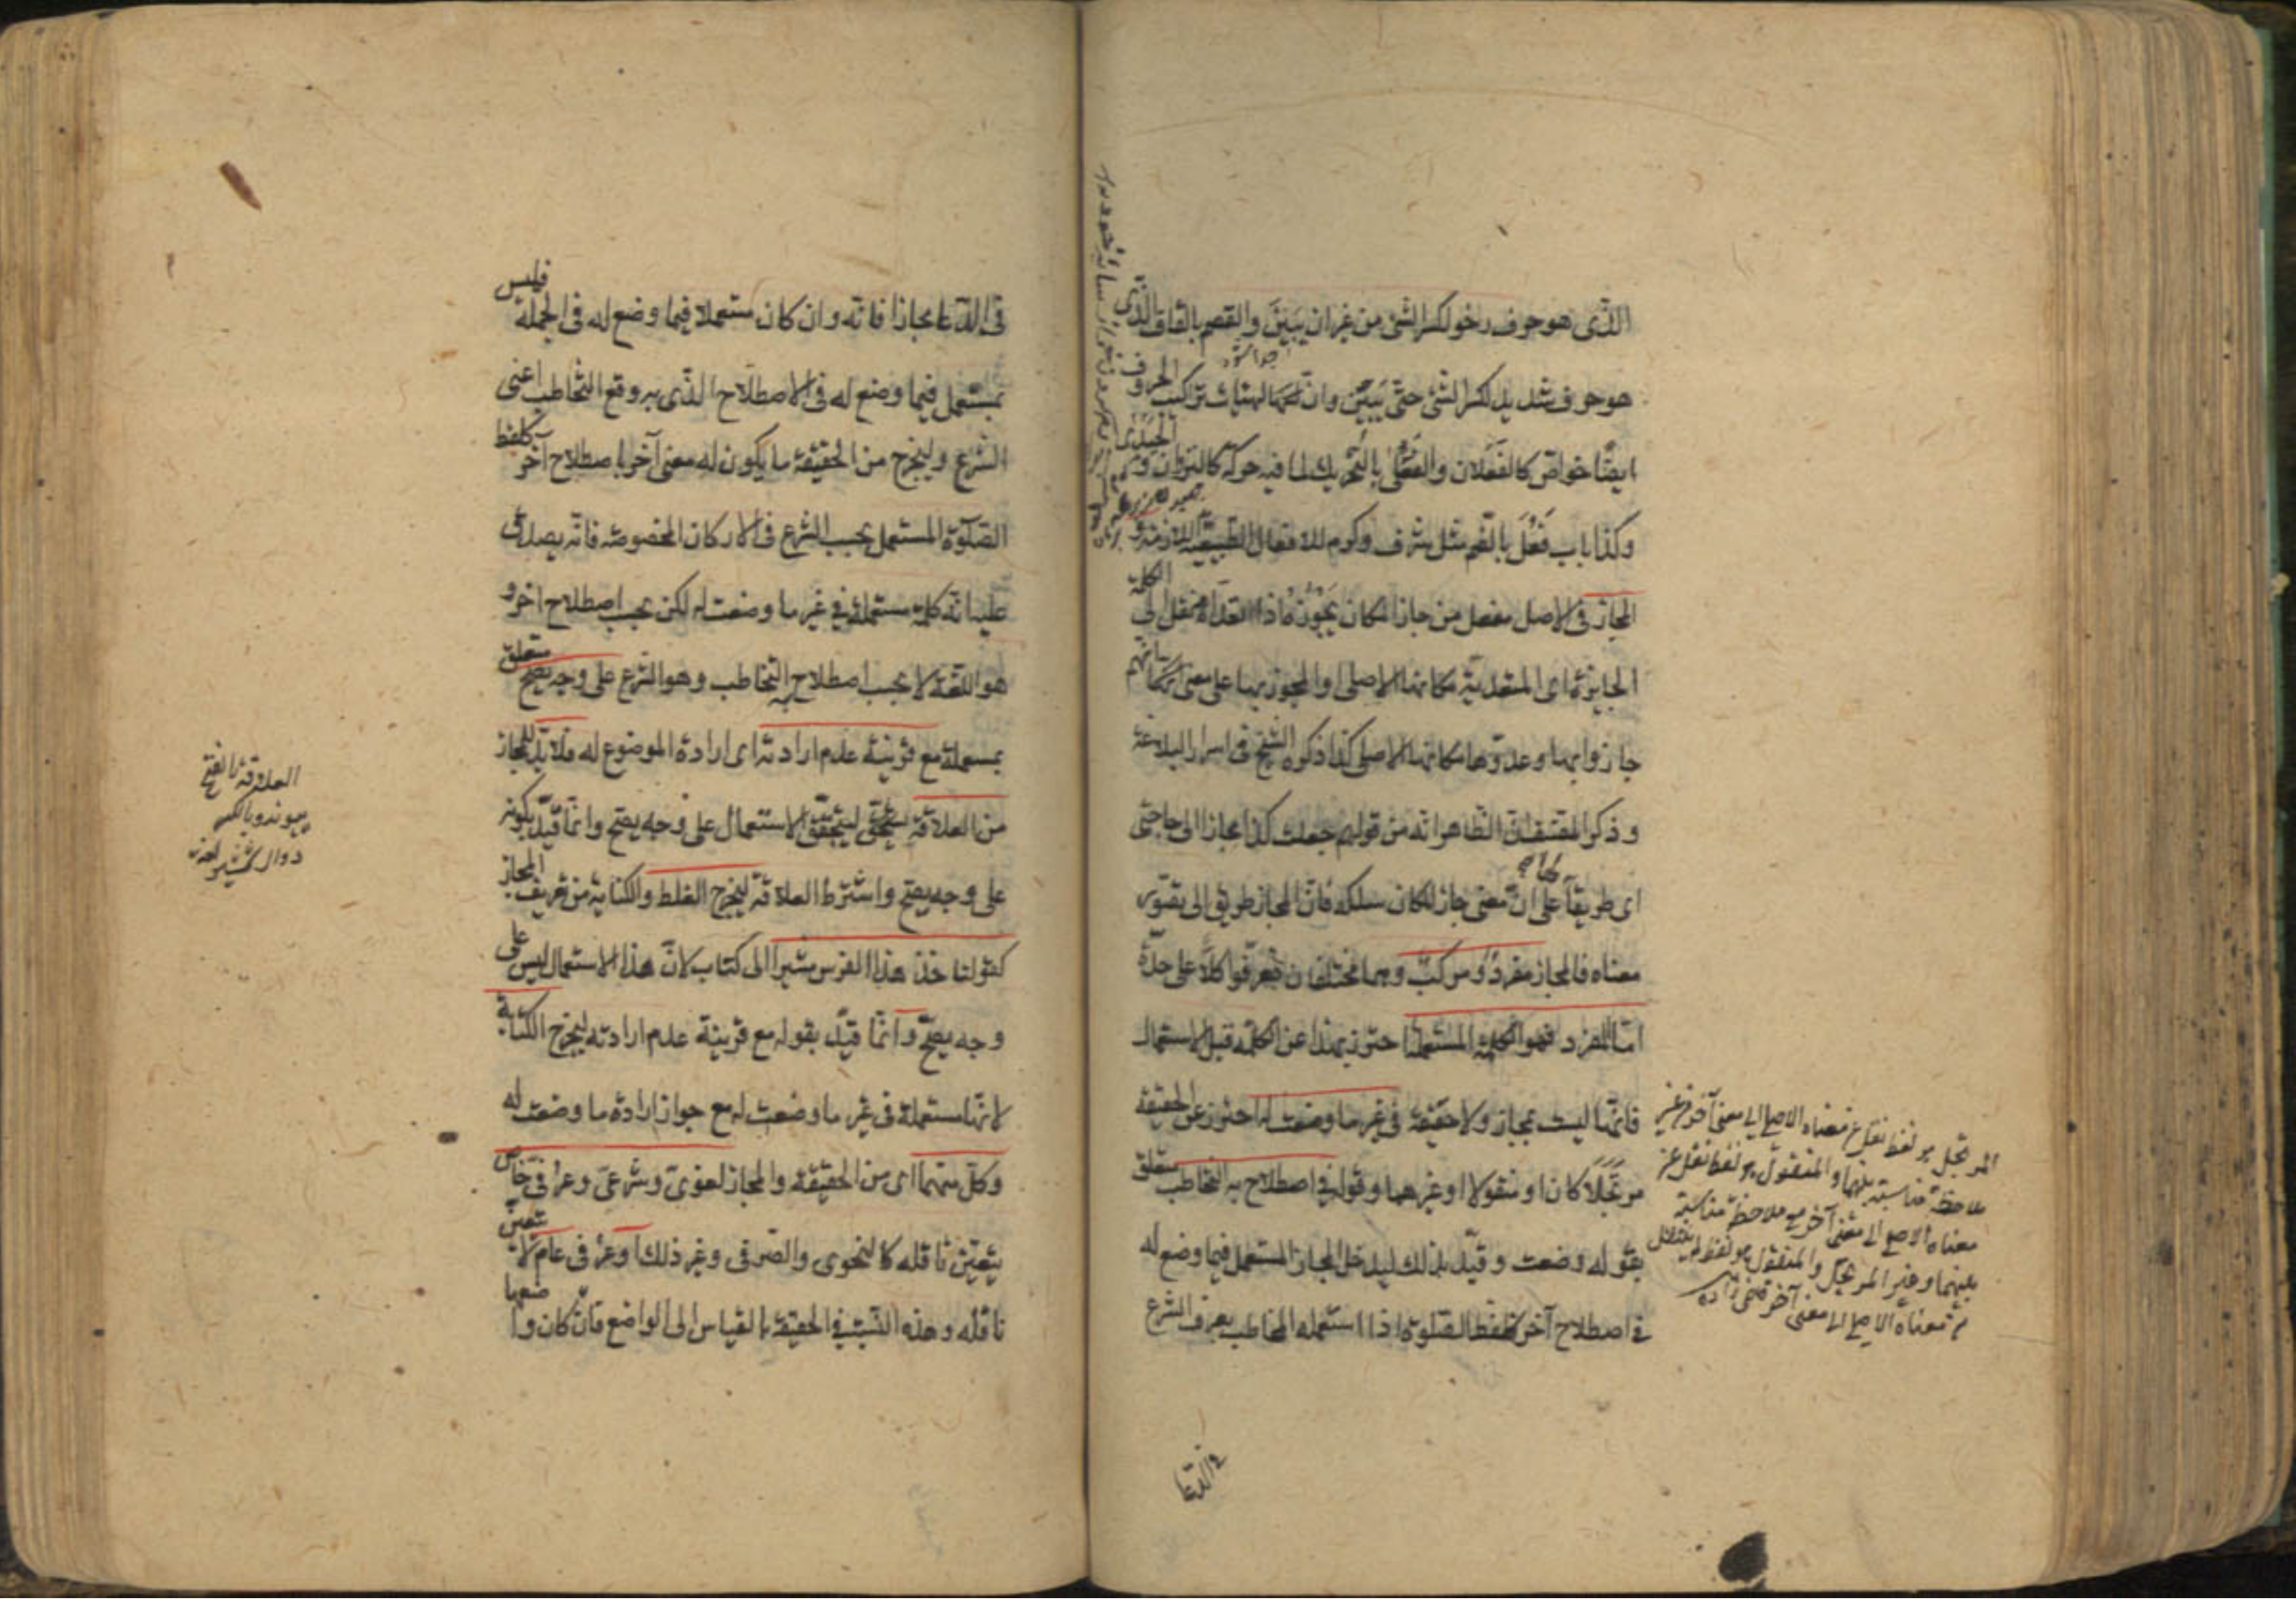 الذى هو حرف رخو لكسر الشئ من غير ان يبين والقصم بالقاف الذى
هو حرف شديد لكسر الشئ حتى يبين وان لهيئات تركيب الحروف
ايضا خواص كالفعلان والفعلى بالتحريك لما فيه حركة كالنزوان و الحيدى
وكذا باب فعل بالضم مثل شرف وكرم للافعال الطبيعية اللازمة و
المجاز فى الاصل مفعل من جاز المكان يجوزه اذا تعداه نقل الى الكلمة
الجايزة اى المتعدية مكانها الاصلى او المجوز بها على معنى انهم
جازوا بها وعدوها مكانها الاصلى كذا ذكره الشيخ فى اسرار البلاغة
وذكر المصنف ان الظاهر انه من قولهم جعلت كذا مجازا الى حاجتى
اى طريقا على ان معنى جاز المكان سلكه فان المجاز طريق الى تصور
معناه فالمجاز مفرد ومركب وهما مختلفان فعرفوا كلا على حدة
اما المفرد فهو الكلمة المستعملة احترز بهذا عن الكلمة قبل الاستعمال
فانها ليست بمجاز ولا حقيقة فى غير ما وضعت له احترز عن الحقيقة
مرتجلا كان او منقولا او غيرهما وقوله فى اصطلاح به التخاطب متعلق
بقوله وضعت وقيد بذلك ليدخل المجاز المستعمل فيما وضع له
فى اصطلاح آخر كلفظ الصلوة اذا استعمله المخاطب بعرف الشرع
المرتجل هو لفظ نقل عن معناه الاصلى الى معنى آخر من غير
ملاحظة مناسبة بينهما والمنقول هو لفظ نقل عن
معناه الاصلى الى معنى آخر مع ملاحظة مناسبة
بينهما وغير المرتجل والمنقول هو لفظ
معناه الاصلى الى معنى آخر
فى الدعا
فى الدعا مجازا فانه وان كان مستعملا فيما وضع له فى الجملة فليس
بمستعمل فيما وضع له فى الاصطلاح الذى به وقع التخاطب اعنى
الشرع وليخرج من الحقيقة ما يكون له معنى آخر باصطلاح آخر كلفظ
الصلوة المستعمل بحسب الشرع فى الاركان المخصوصة فانه يصدق
عليه انه كلمة مستعملة فى غير ما وضعت له لكن بحسب اصطلاح اخر و
هو اللغة لا بحسب اصطلاح به التخاطب وهو الشرع على وجه يصح متعلق
بمستعملة مع قرينة عدم ارادته اى ارادة الموضوع له فلا بد للمجاز
من العلاقة ليتحقق الاستعمال على وجه يصح وانما قيد بكونه
على وجه يصح واشترط العلاقة ليخرج الغلط والكناية من تعريف المجاز
كقولنا خذ هذا الفرس مشيرا الى كتاب لان هذا الاستعمال ليس على
وجه يصح وانما قيد بقوله مع قرينة عدم ارادته ليخرج الكناية
لانها مستعملة فى غير ما وضعت له مع جواز ارادة ما وضعت له
وكل منهما اى من الحقيقة والمجاز لغوى وشرعى وعرفى خاص
يتعين ناقله كالنحوى والصرفى وغير ذلك او عرفى عام لا يتعين
ناقله وهذه النسبة فى الحقيقة بالقياس الى الواضع فان كان واضعها
العلاقة بالفتح